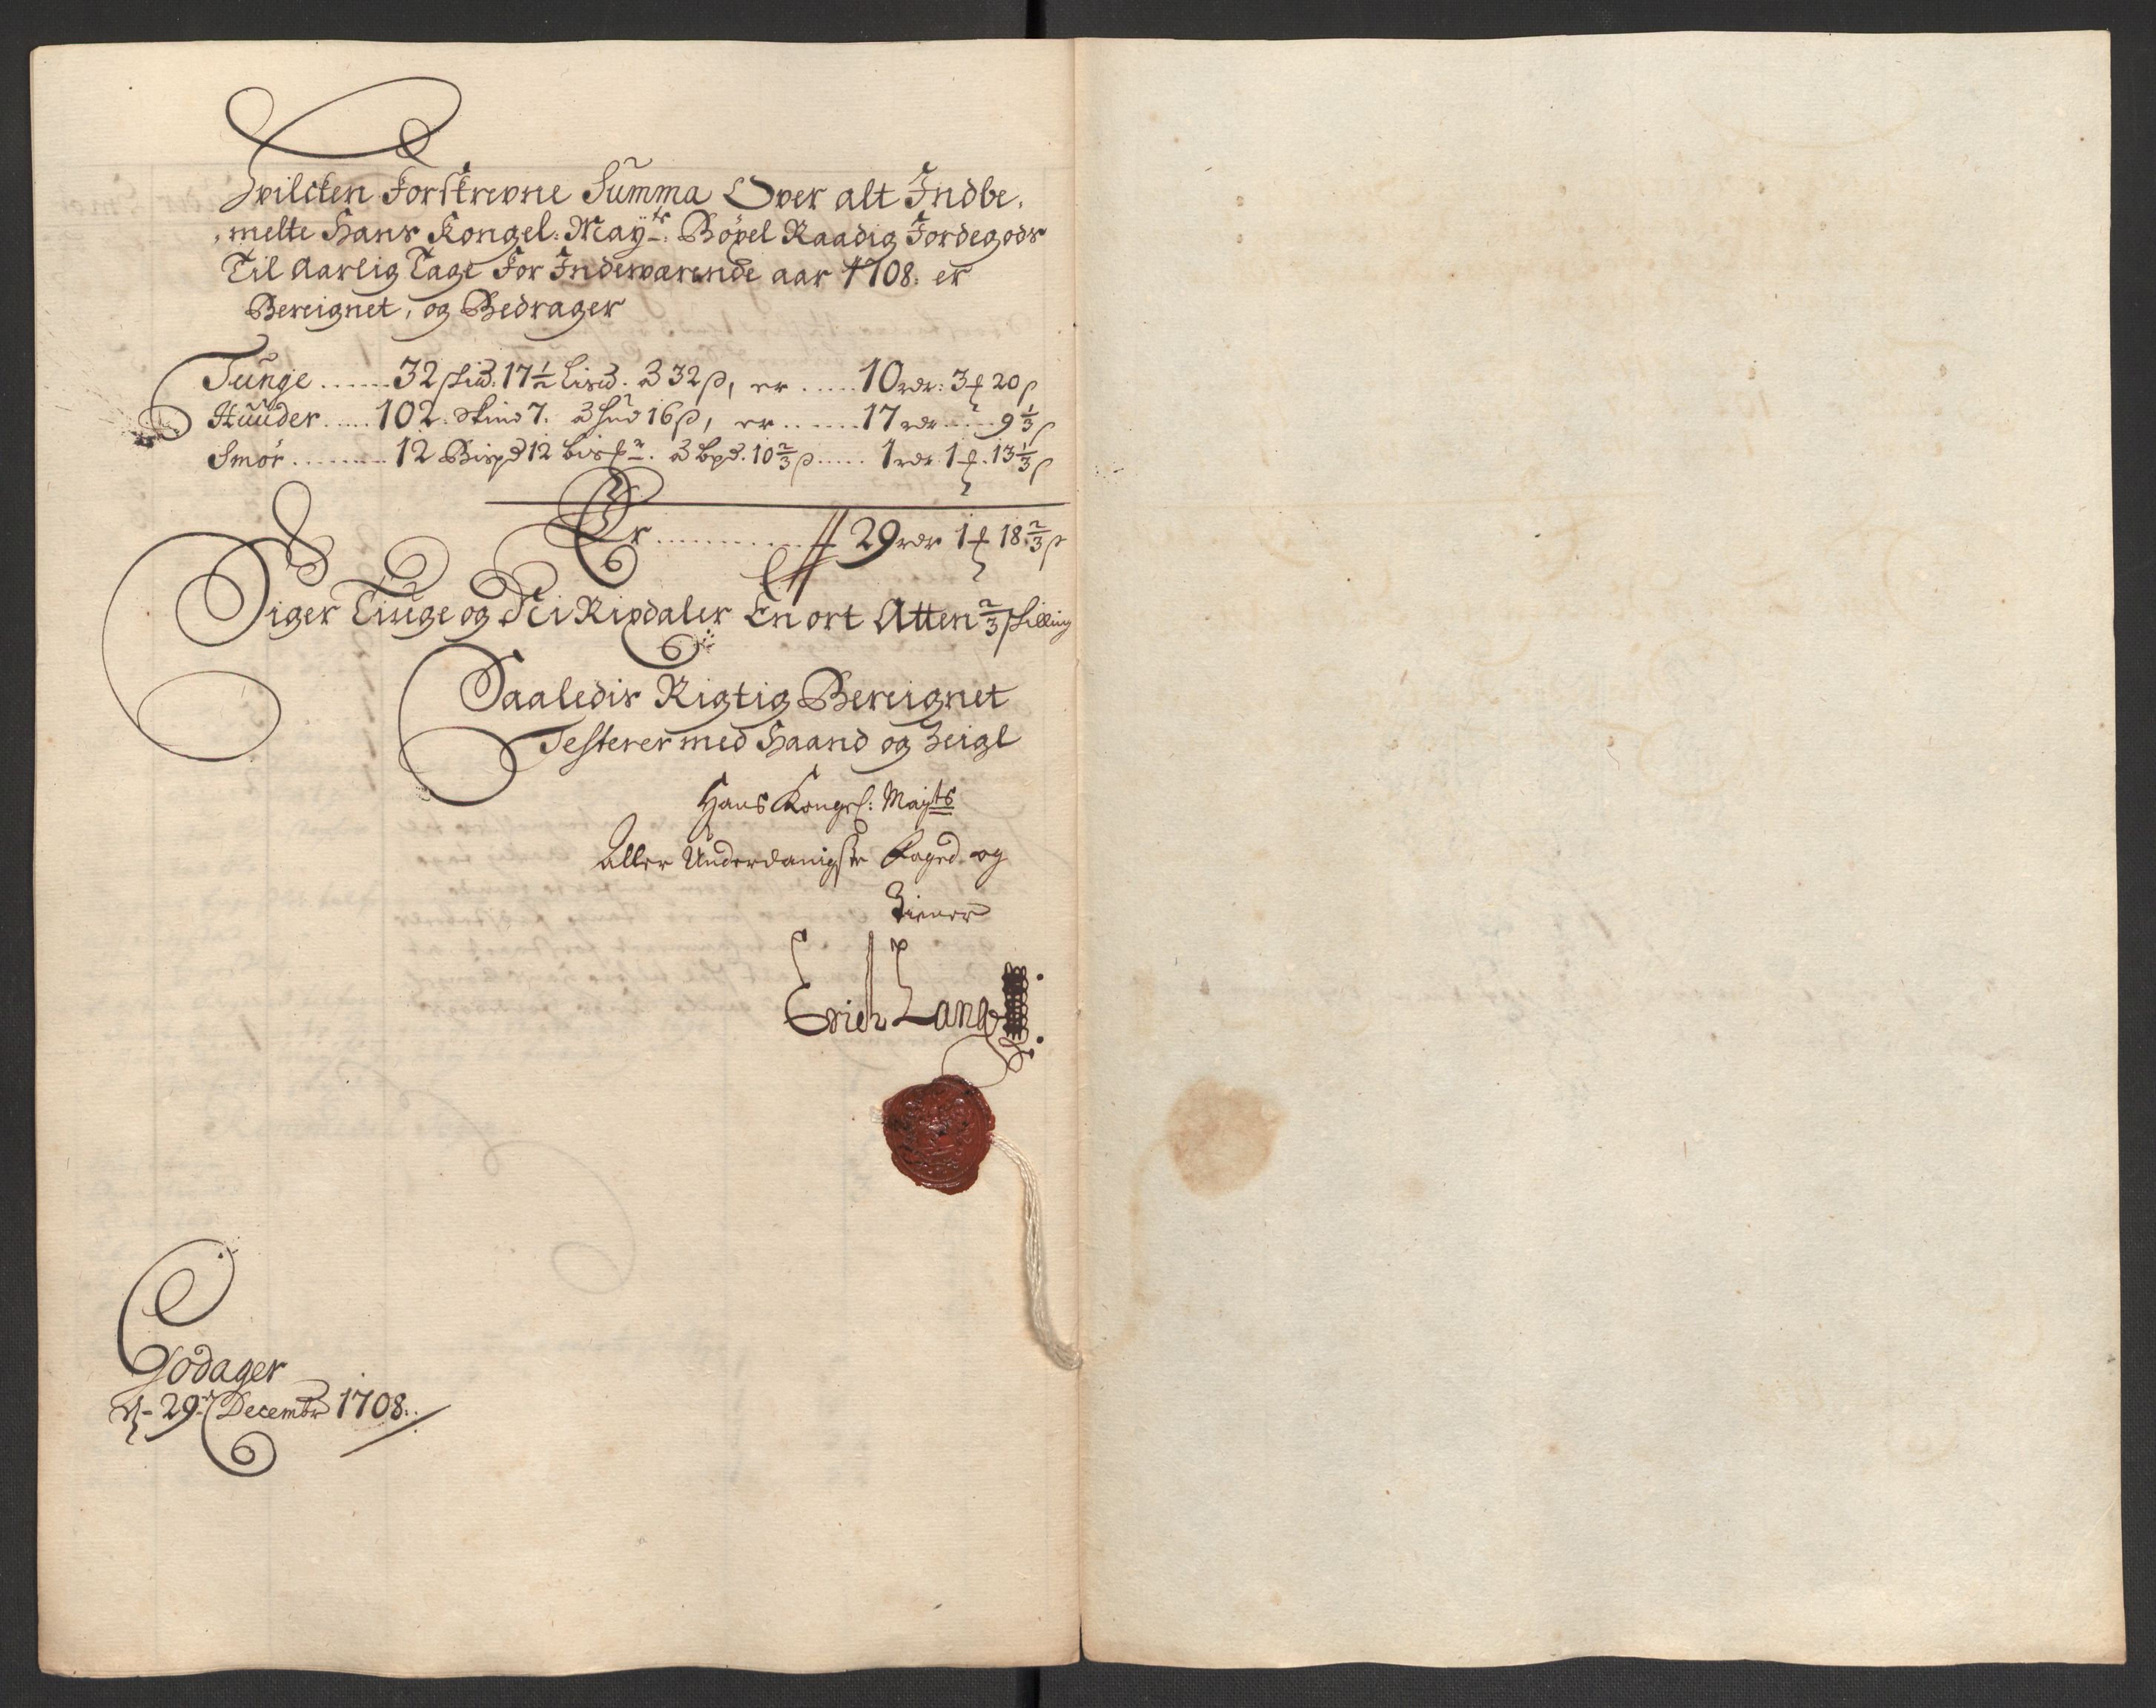 Hvilcken Forskrevne Summa Over alt Indbe,
,melte Hans Kongel: Mayts: Bøxel Raadig Jordegods
Til Aarlig Tage For Indeværende aar 1708. er
Bereignet, og Bedrager
Tunge ...... 32 skud. 17½ Lisud. a 32 ß, er ..... 10 rdr: 3 ꝼ 20 ß
Huuder ..... 102. skind 7. a hud 16 ß, er ...... 17 rdr ..... 9⅓ ß
Smør ........ 12 Bispd 12 . a Bpd. 10⅔ ß ..... 1 rdr 1 ꝼ. 13⅓ ß
Er ............ 29 rdr 1 ꝼ 18⅔ ß
Siger Tiuge og Ni Rixdaler En ort Atten ⅔ skilling
Saaledis Rigtig Bereignet
Testerer med Haand og Zeigl
Hans Kongel: Mayts
Aller Underdanigste Foged og
Tiener
Erich Lang
Godager
d- 29 Decembr 1708.